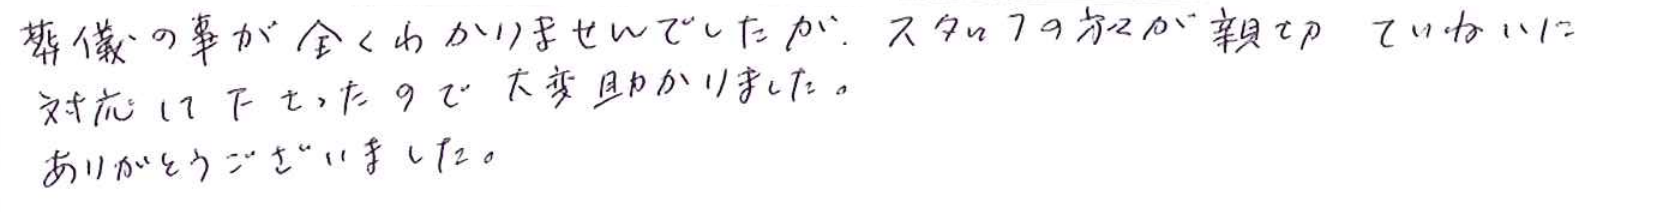 葬儀の事が全くわかりませんでしたが、スタッフの方々が親切 ていねいに
対応して下さったので大変助かりました。
ありがとうございました。